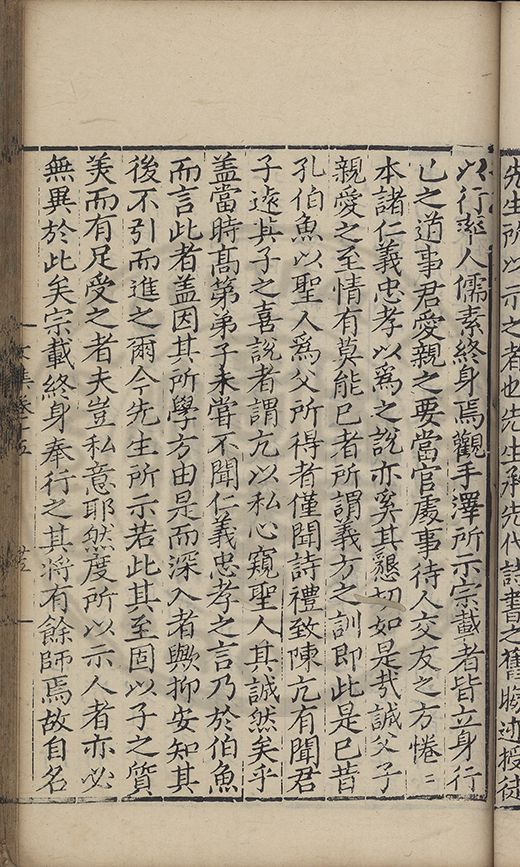 先生所以示之者也先生承先代詩書之舊晦迹授徒
以行率人儒素終身焉觀手澤所示宗載者皆立身行
已之道事君愛親之要當官處事待人交友之方惓〻
本諸仁義忠孝以爲之說亦奚其懇切如是㢤誠父子
親愛之至情有莫能已者所謂義方之訓即此是已昔
孔伯魚以聖人爲父所得者僅聞詩禮致陳亢有聞君
子遠其子之喜說者謂亢以私心窺聖人其誠然矣乎
盖當時髙第弟子未甞不聞仁義忠孝之言乃於伯魚
而言此者盖因其所學方由是而深入者歟抑安知其
後不引而進之爾今先生所示若此其至因以子之質
美而有足受之者夫豈私意耶然度所以示人者亦必
無異於此矣宗載終身奉行之其將有餘師焉故自名
文集卷十五